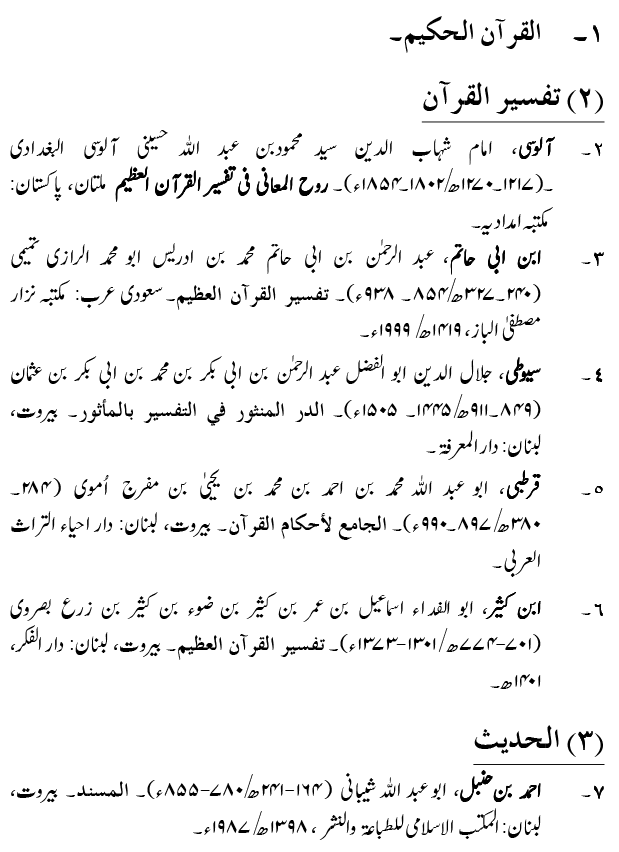 ۱۔ القرآن الحکیم۔
(۲) تفسیر القرآن
۲۔ آلوسی، امام شہاب الدین سید محمود بن عبد اللہ حسینی آلوسی البغدادی
۔(۱۲۱۷۔۱۲۷۰ھ/۱۸۰۲۔۱۸۵۴ء)۔ روح المعانی فی تفسیر القرآن العظیم ملتان، پاکستان:
مکتبہ امدادیہ۔
۳۔ ابن ابی حاتم، عبد الرحمٰن بن ابی حاتم محمد بن ادریس ابو محمد الرازی تمیمی
(۲۴۰۔۳۲۷ھ/۸۵۴۔ ۹۳۸ء)۔ تفسیر القرآن العظیم۔ سعودی عرب: مکتبہ نزار
مصطفیٰ الباز، ۱۴۱۹ھ/ ۱۹۹۹ء۔
۴۔ سیوطی، جلال الدین ابو الفضل عبد الرحمٰن بن ابی بکر بن محمد بن ابی بکر بن عثمان
(۸۴۹۔۹۱۱ھ/۱۴۴۵۔ ۱۵۰۵ء)۔ الدر المنثور في التفسير بالمأثور۔ بیروت،
لبنان: دار المعرفۃ۔
۵۔ قرطبی، ابو عبد اللہ محمد بن احمد بن محمد بن یحییٰ بن مفرج اُموی (۲۸۴۔
۳۸۰ھ/۸۹۷۔۹۹۰ء)۔ الجامع لأحکام القرآن۔ بیروت، لبنان: دار احیاء التراث
العربی۔
۶۔ ابن کثیر، ابو الفداء اسماعیل بن عمر بن کثیر بن ضوء بن کثیر بن زرع بصروی
(۷۰۱-۷۷۴ھ/۱۳۰۱-۱۳۷۳ء)۔ تفسیر القرآن العظیم۔ بیروت، لبنان: دار الفکر،
۱۴۰۱ھ۔
(۳) الحدیث
۷۔ احمد بن حنبل، ابو عبد اللہ شیبانی (۱۶۴-۲۴۱ھ/۷۸۰-۸۵۵ء)۔ المسند۔ بیروت،
لبنان: المکتب الاسلامی للطباعۃ والنشر، ۱۳۹۸ھ/۱۹۸۷ء۔